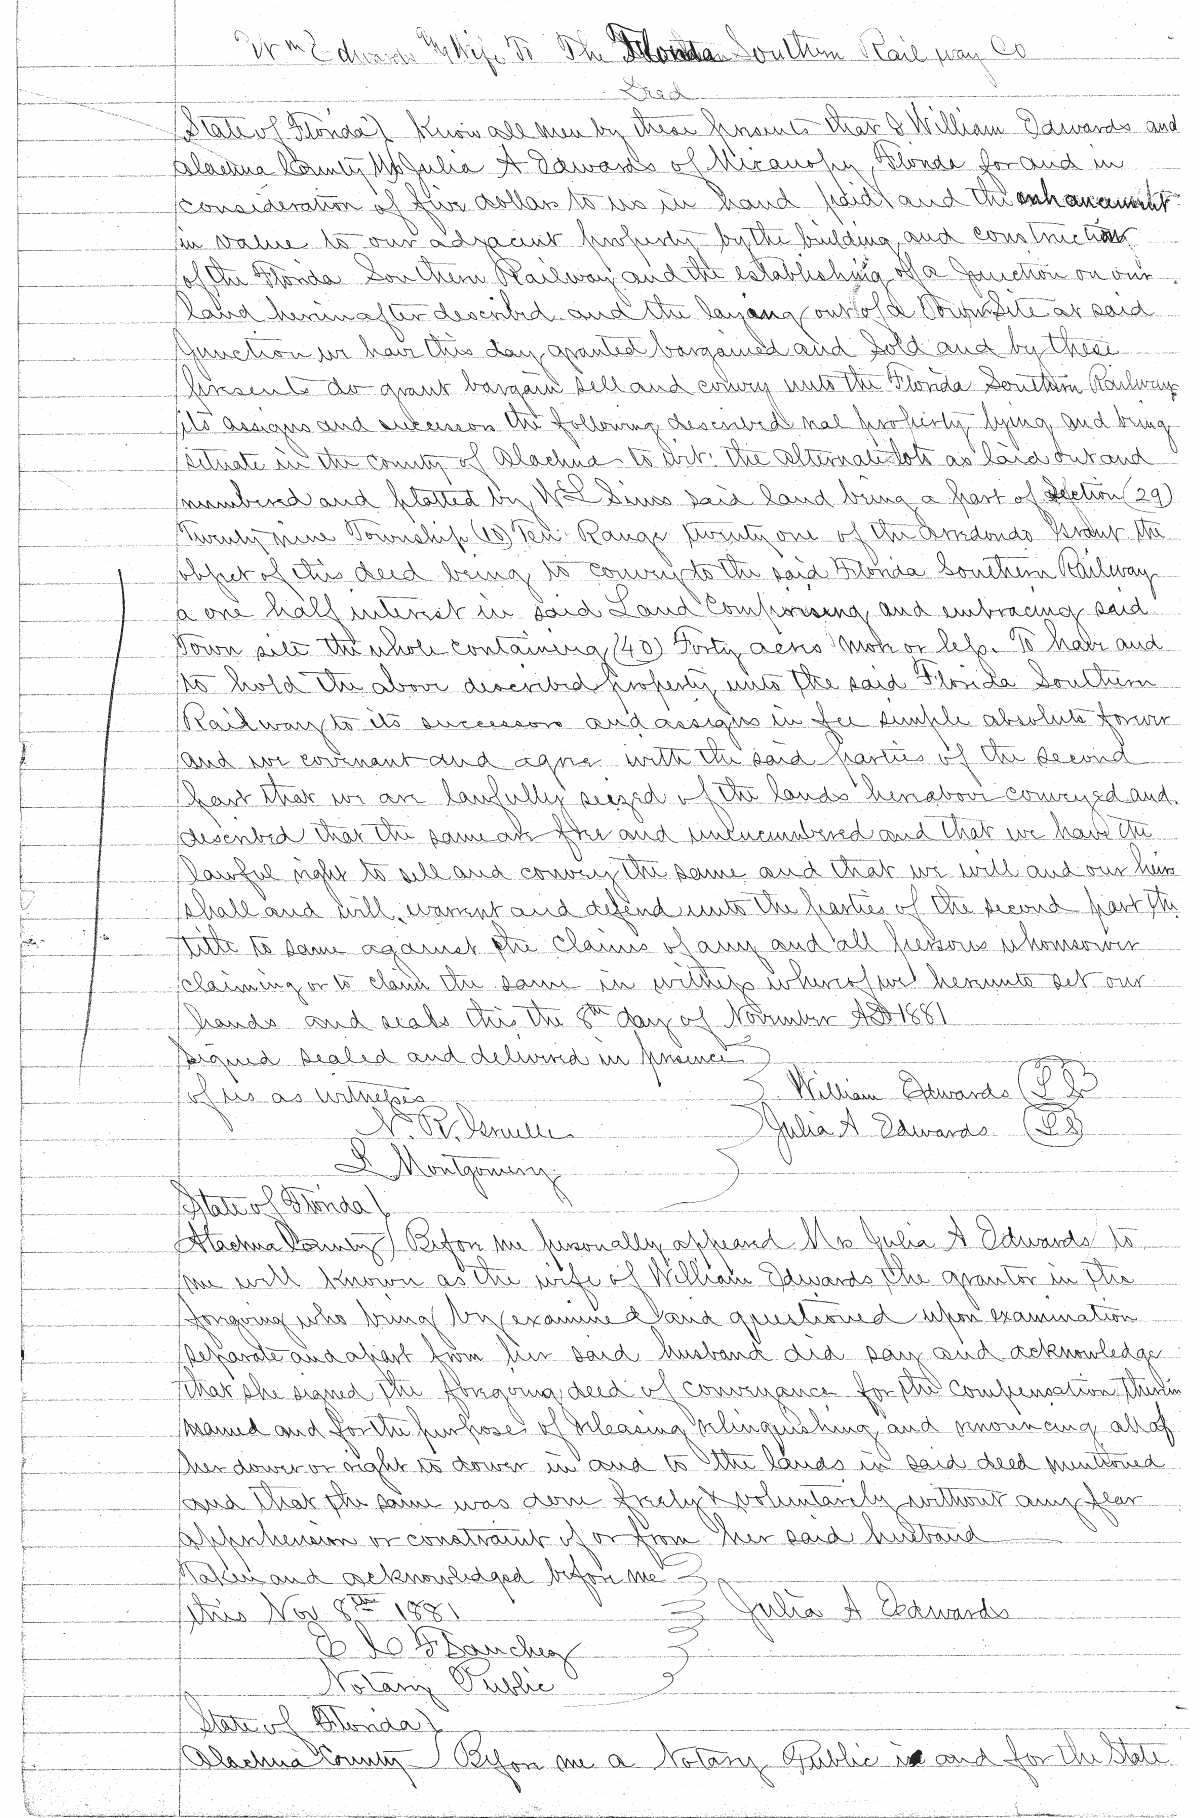 Wm Edwards & Wife To The Florida Southern Rail way Co
Deed
State of Florida } Know all men by these presents that I William Edwards and
Alachua County Julia A Edwards of Micanopy, Florida for and in
consideration of five dollars to us in hand paid and the enhancement
in value to our adjacent property by the building and construction
of the Florida Southern Railway and the establishing of a Junction on our
land herinafter described and the laying out of a Town Site at said
Junction we have this day granted bargained and sold and by these
presents do grant bargain sell and convey unto the Florida Southern Railway
its assigns and successors the following described real property lying and being
situate in the county of Alachua to wit: the alternate lots as laid out and
numbered and platted by W L Sims said land being a part of Section (29)
Twenty nine Township (10) Ten Range twenty one of the Arredondo Grant the
object of this deed being to convey to the said Florida Southern Railway
a one half interest in said Land Comprising and embracing said
Town site the whole containing (40) Forty acres more or less. To have and
to hold the above described property unto the said Florida Southern
Railway to its successors and assigns in fee simple absolute forever
and we covenant and agree with the said parties of the second
part that we are lawfully seized of the lands hereabove conveyed and
described that the same are free and unencumbered and that we have the
lawful right to sell and convey the same and that we will and our heirs
shall and will warrant and defend unto the parties of the second part the
title to same against the claims of any and all persons whomsoever
claiming or to claim the same in witness whereof we hereunto set our
hands and seals this the 8th day of November AD 1881
Signed sealed and delivered in presence
of us as witnesses William Edwards (L S)
N. R. Gruelle Julia A Edwards (L S)
L Montgomery
State of Florida }
Alachua County } Before me personally appeared Mrs Julia A Edwards to
me well known as the wife of William Edwards the grantor in the
forgoing who being by examined and questioned upon examination
separate and apart from her said husband did say and acknowledge
that she signed the foregoing deed of conveyance for the compensation therein
named and for the purpose of releasing relinquishing and renouncing all of
her dower or right to dower in and to the lands in said deed mentioned
and that the same was done freely & voluntarily without any fear
apprehension or constraint of or from her said husband
Taken and acknowledged before me
this Nov 8th 1881 Julia A Edwards
E C F Sanchez
Notary Public
State of Florida }
Alachua County } Before me a Notary Public in and for the State